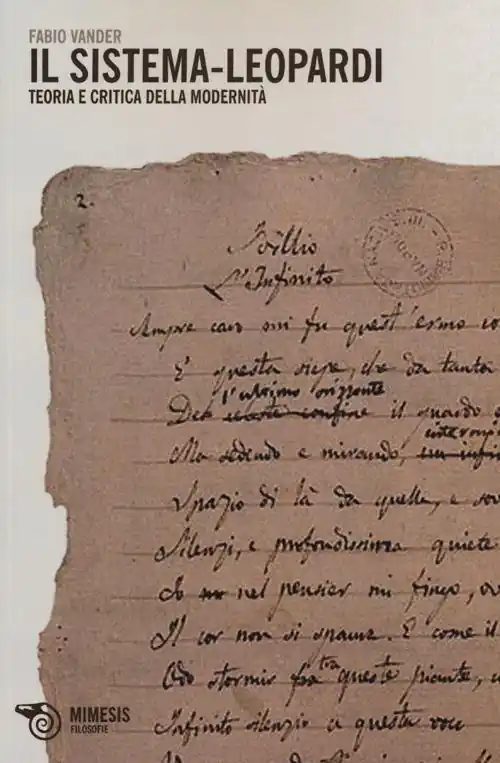 FABIO VANDER
IL SISTEMA-LEOPARDI
TEORIA E CRITICA DELLA MODERNITÀ
2.
Idillio
L'Infinito
Sempre caro mi fu quest'ermo
E questa siepe, che da tanta
l'ultimo orizzonte
Del celeste confine il guardo
Ma sedendo e mirando,
Spazio di là da quella, e
Silenzi, e profondissima quiete
Io nel pensier mi fingo,
Il cor non si spaura. E come il
tra
Odo stormir fra queste piante,
Infinito silenzio a questa voce
MIMESIS
FILOSOFIE